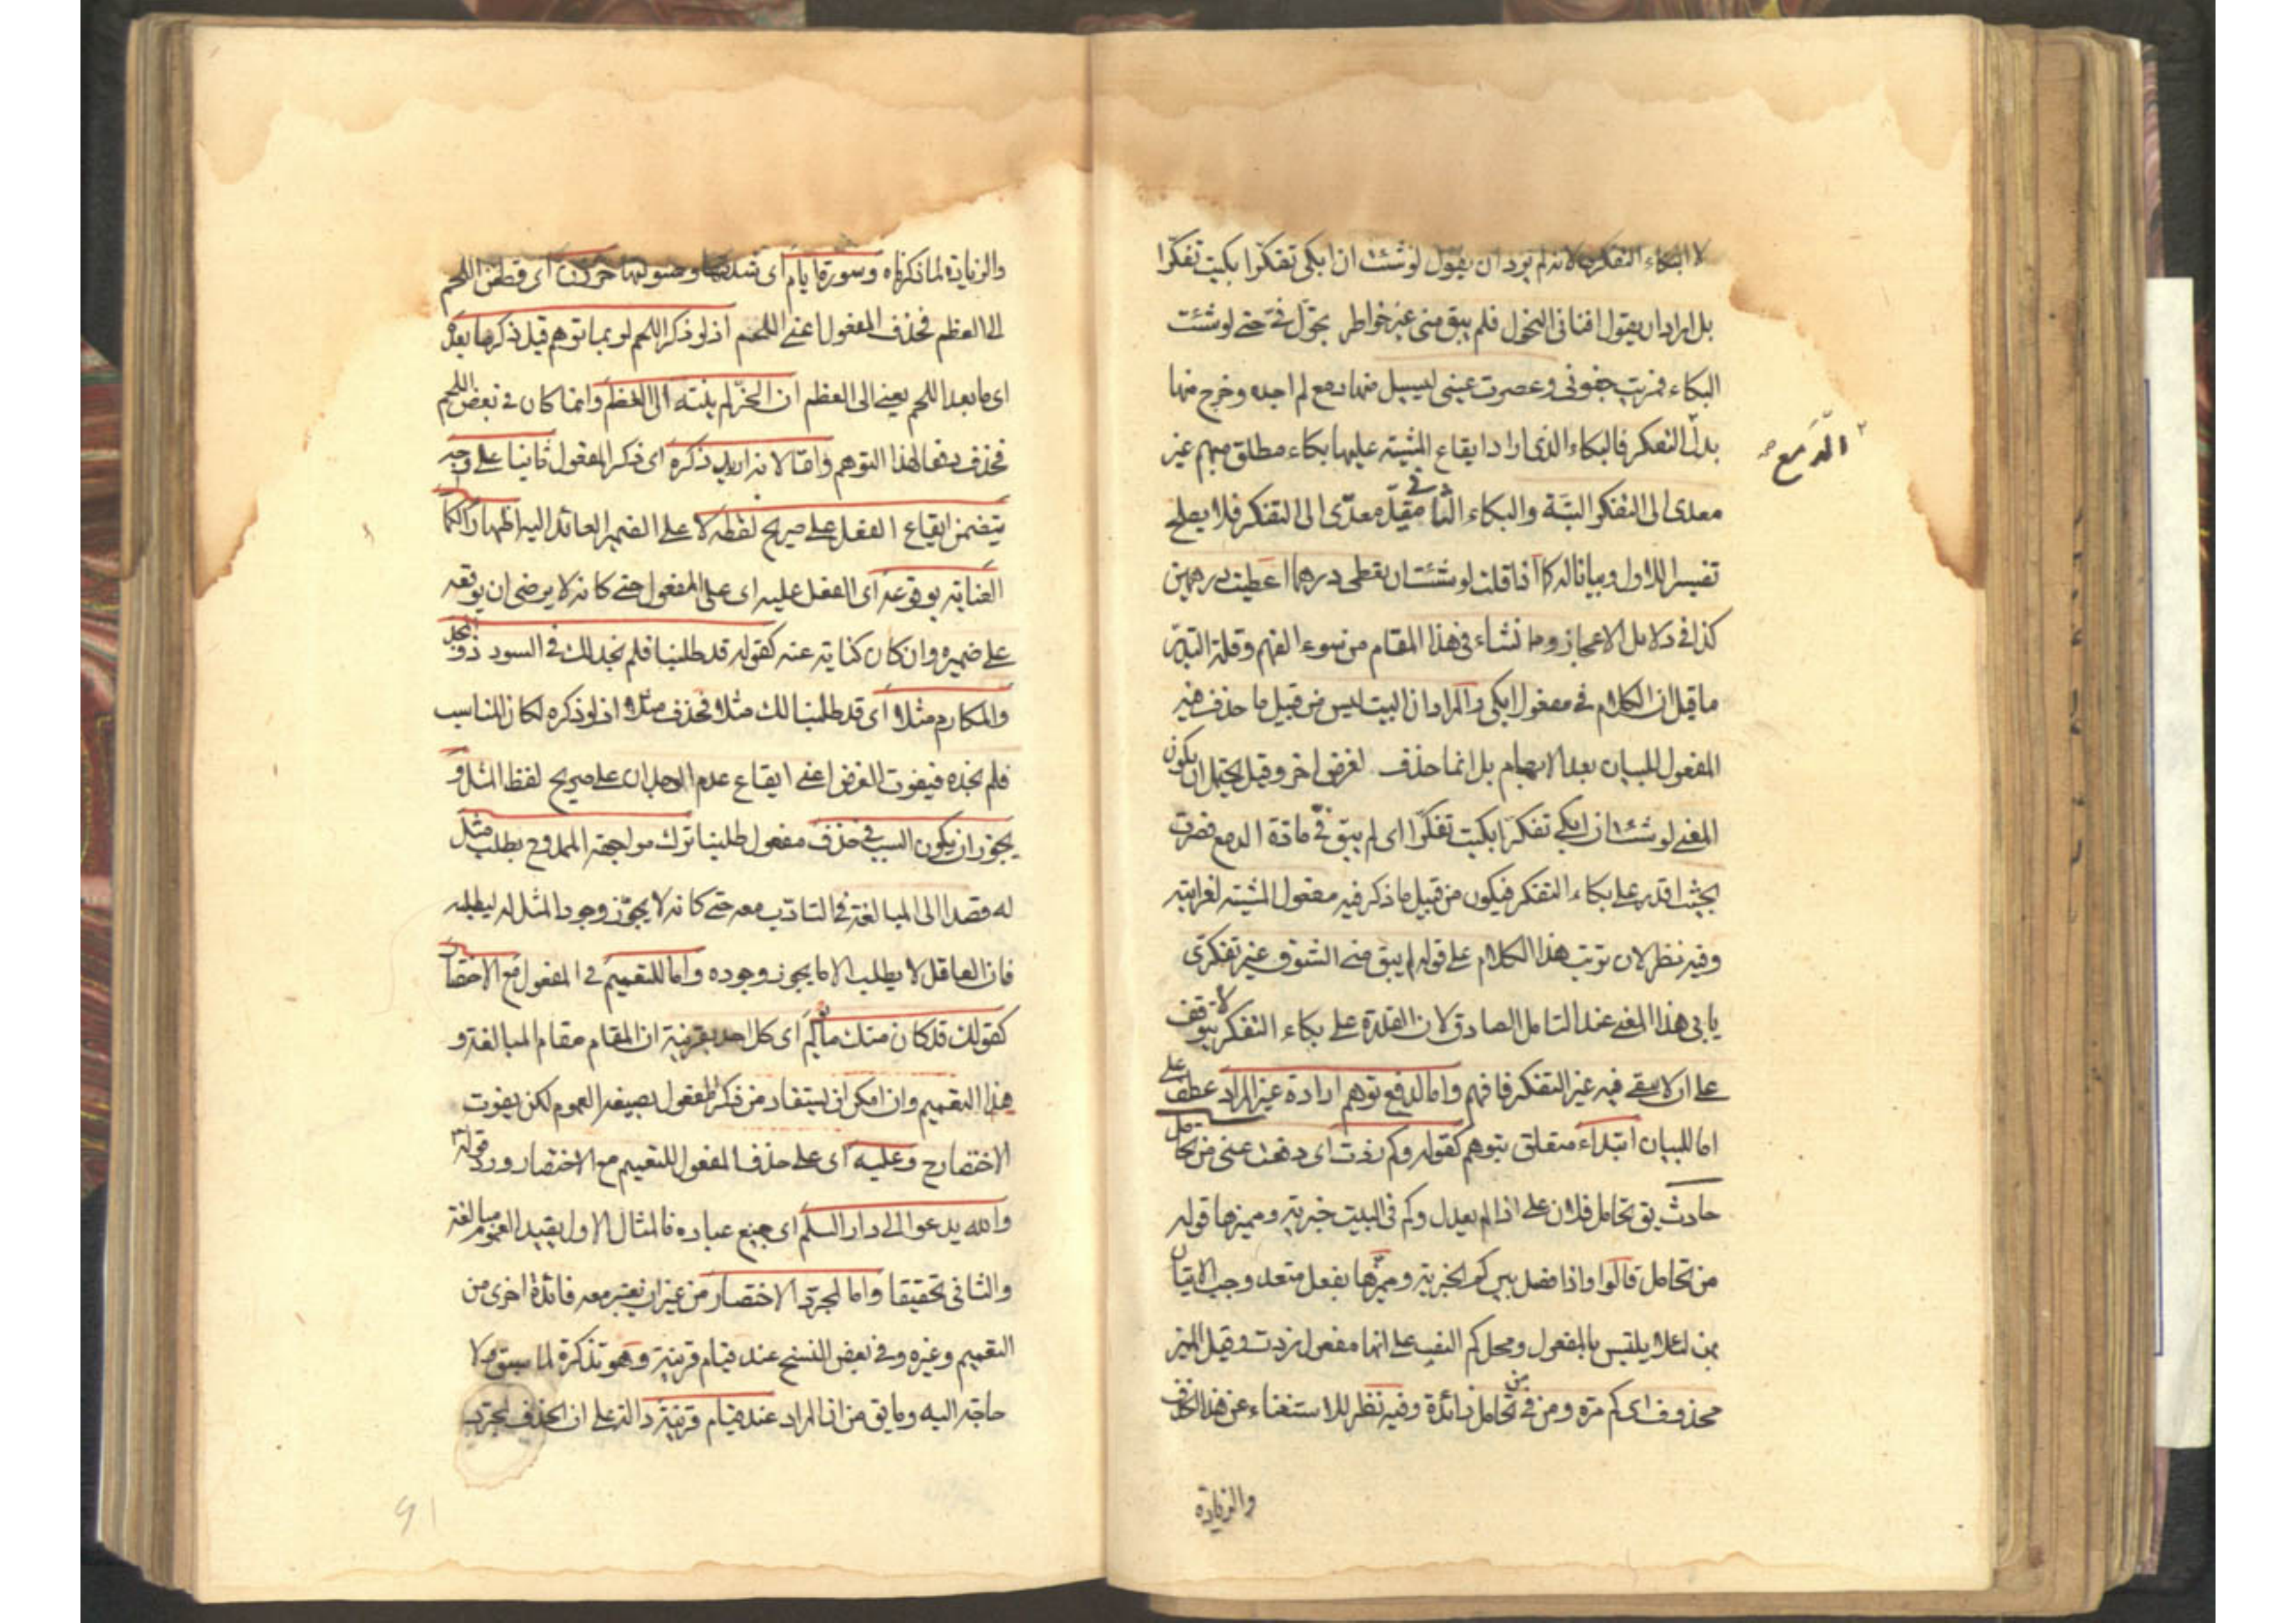 لا البكاء التفكرى لانه لم يرد ان يقول لو شئت ان ابكى تفكرا بكيت تفكرا
بل اراد ان يقول افنانى النحول فلم يبق منى غير خواطر تجول فىّ حتى لو شئت
البكاء فمريت جفونى وعصرت عينى ليسيل منها دمع لم اجده وخرج منها
بدل التفكر فالبكاء الذى اراد ايقاع المشيته عليها بكاء مطلق مبهم غير
الدّمع صح
معدى الى التفكر البتة والبكاء الثانى مقيد معدّى الى التفكر فلا يصلح
تفسيرا للاول وبيانا له كما اذا قلت لو شئت ان تعطى درهما اعطيت درهمين
كذا فى دلايل الاعجاز ومما نشاء فى هذا المقام من سوء الفهم وقلة التدبر
ما قيل ان الكلام فى مفعول ابكى والمراد ان البيت ليس من قبيل ما حذف فيه
المفعول للبيان بعد الابهام بل انما حذف لغرض اخر وقيل يحتمل ان يكون
المعنى لو شئت ان ابكى تفكرا بكيت تفكرا اى لم يبق فىّ مادة الدمع فصرت
بحيث اقدر على بكاء التفكر فيكون من قبيل ما ذكر فيه مفعول المشيته لغرابته
وفيه نظر لان ترتب هذا الكلام على قوله لم يبق منى الشوق غير تفكرى
يابى هذا المعنى عند التامل الصادق لان القدرة على بكاء التفكر لا يتوقف
على ان لا يبقى فيه غير التفكر فافهم واما لدفع توهم ارادة غير المراد عطف على
اما للبيان ابتداء متعلق بتوهم كقوله وكم ذدت اى دفعت عنى من تحامل
حادث يق تحامل فلان على اذا لم يعدل وكم فى البيت خبرية ومميزها قوله
من تحامل قالوا واذا فصل بين كم الخبرية ومميزها بفعل متعد وجب الاتيان
بمن لئلا يلتبس بالمفعول ومحل كم النصب على انها مفعول ذدت وقيل المميز
محذوف اى كم مرة ومن فى من تحامل زائدة وفيه نظر للاستغناء عن هذا الحذف
والزيادة
والزيادة لما ذكرناه وسورة ايام اى شدتها وصولتها حززن اى قطعن اللحم
الى العظم فحذف المفعول اعنى اللحم اذ لو ذكر اللحم لربما توهم قبل ذكر ما بعده
اى ما بعد اللحم يعنى الى العظم ان الحز لم ينته الى العظم وانما كان فى بعض اللحم
فحذف دفعا لهذا التوهم واما لانه اريد ذكره اى ذكر المفعول ثانيا على وجه
يتضمن ايقاع الفعل على صريح لفظه لا على الضمير العائد اليه اظهارا لكمال
العناية بوقوعه اى الفعل عليه اى على المفعول حتى كانه لا يرضى ان يوقعه
على ضميره وان كان كناية عنه كقوله قد طلبنا فلم نجد لك فى السودد والمجد
والمكارم مثلا اى قد طلبنا لك مثلا فحذف مثلا اذ لو ذكره لكان المناسب
فلم نجده فيفوت الغرض اعنى ايقاع عدم الوجدان على صريح لفظ المثل و
يجوز ان يكون السبب فى حذف مفعول طلبنا ترك مواجهة الممدوح بطلب مثل
له قصدا الى المبالغة فى التادّب معه حتى كانه لا يجوّز وجود المثل له ليطلبه
فان العاقل لا يطلب الا ما يجوز وجوده واما للتعميم فى المفعول مع الاختصار
كقولك قد كان منك ما يؤلم اى كل احد بقرينة ان المقام مقام المبالغة و
هذا التعميم وان امكن ان يستفاد من ذكر المفعول بصيغة العموم لكن يفوت
الاختصار ح وعليه اى على حذف المفعول للتعميم مع الاختصار ورد قوله تع
والله يدعوا الى دار السلم اى جميع عباده فالمثال الاول يفيد العموم مبالغة
والثانى تحقيقا واما لمجرد الاختصار من غير ان يعتبر معه فائدة اخرى من
التعميم وغيره وفى بعض النسخ عند قيام قرينة وهو تذكرة لما سبق ولا
حاجة اليه وما يق من ان المراد عند قيام قرينة دالة على ان الحذف لمجرد